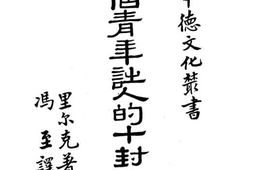 德文化叢書
個青年詩人的十封
里尔克著
馮至譯